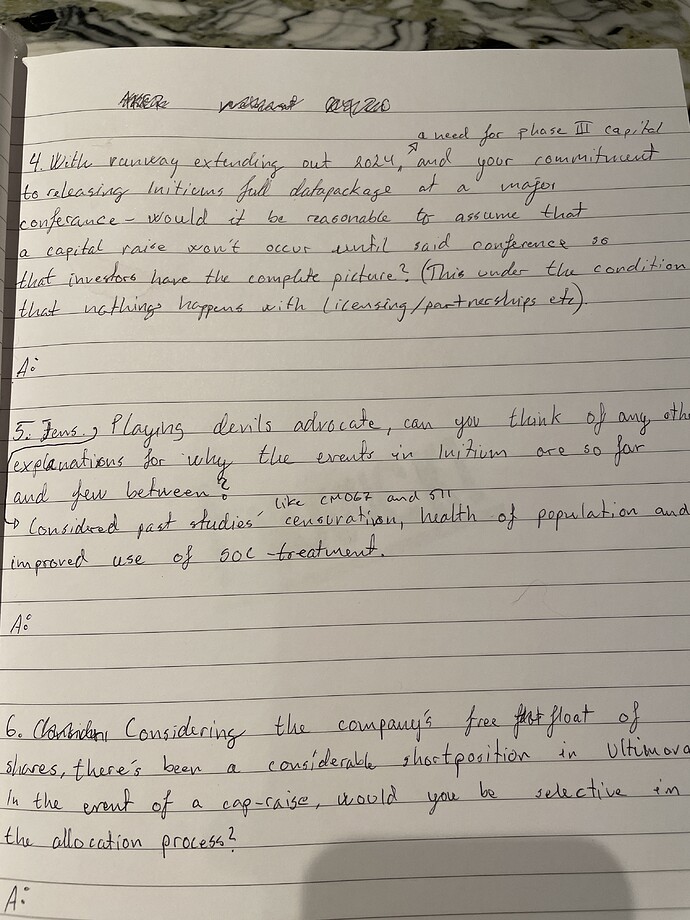 a need for phase III capital
4. With runway extending out 2024, and your commitment
to releasing Initiums full datapackage at a major
conferance - would it be reasonable to assume that
a capital raise won't occur until said conference so
that investors have the complete picture? (This under the condition
that nothings happens with licensing/partnerships etc).
A:
5. Jens, Playing devils advocate, can you think of any oth
explanations for why the events in Initium are so far
and few between?
like CM067 and 511
↳ Considered past studies' censuration, health of population and
improved use of SOC-treatment.
A:
6. Considering the company's free float of
shares, there's been a considerable shortposition in Ultimova
In the event of a cap-raise, would you be selective in
the allocation process?
A: